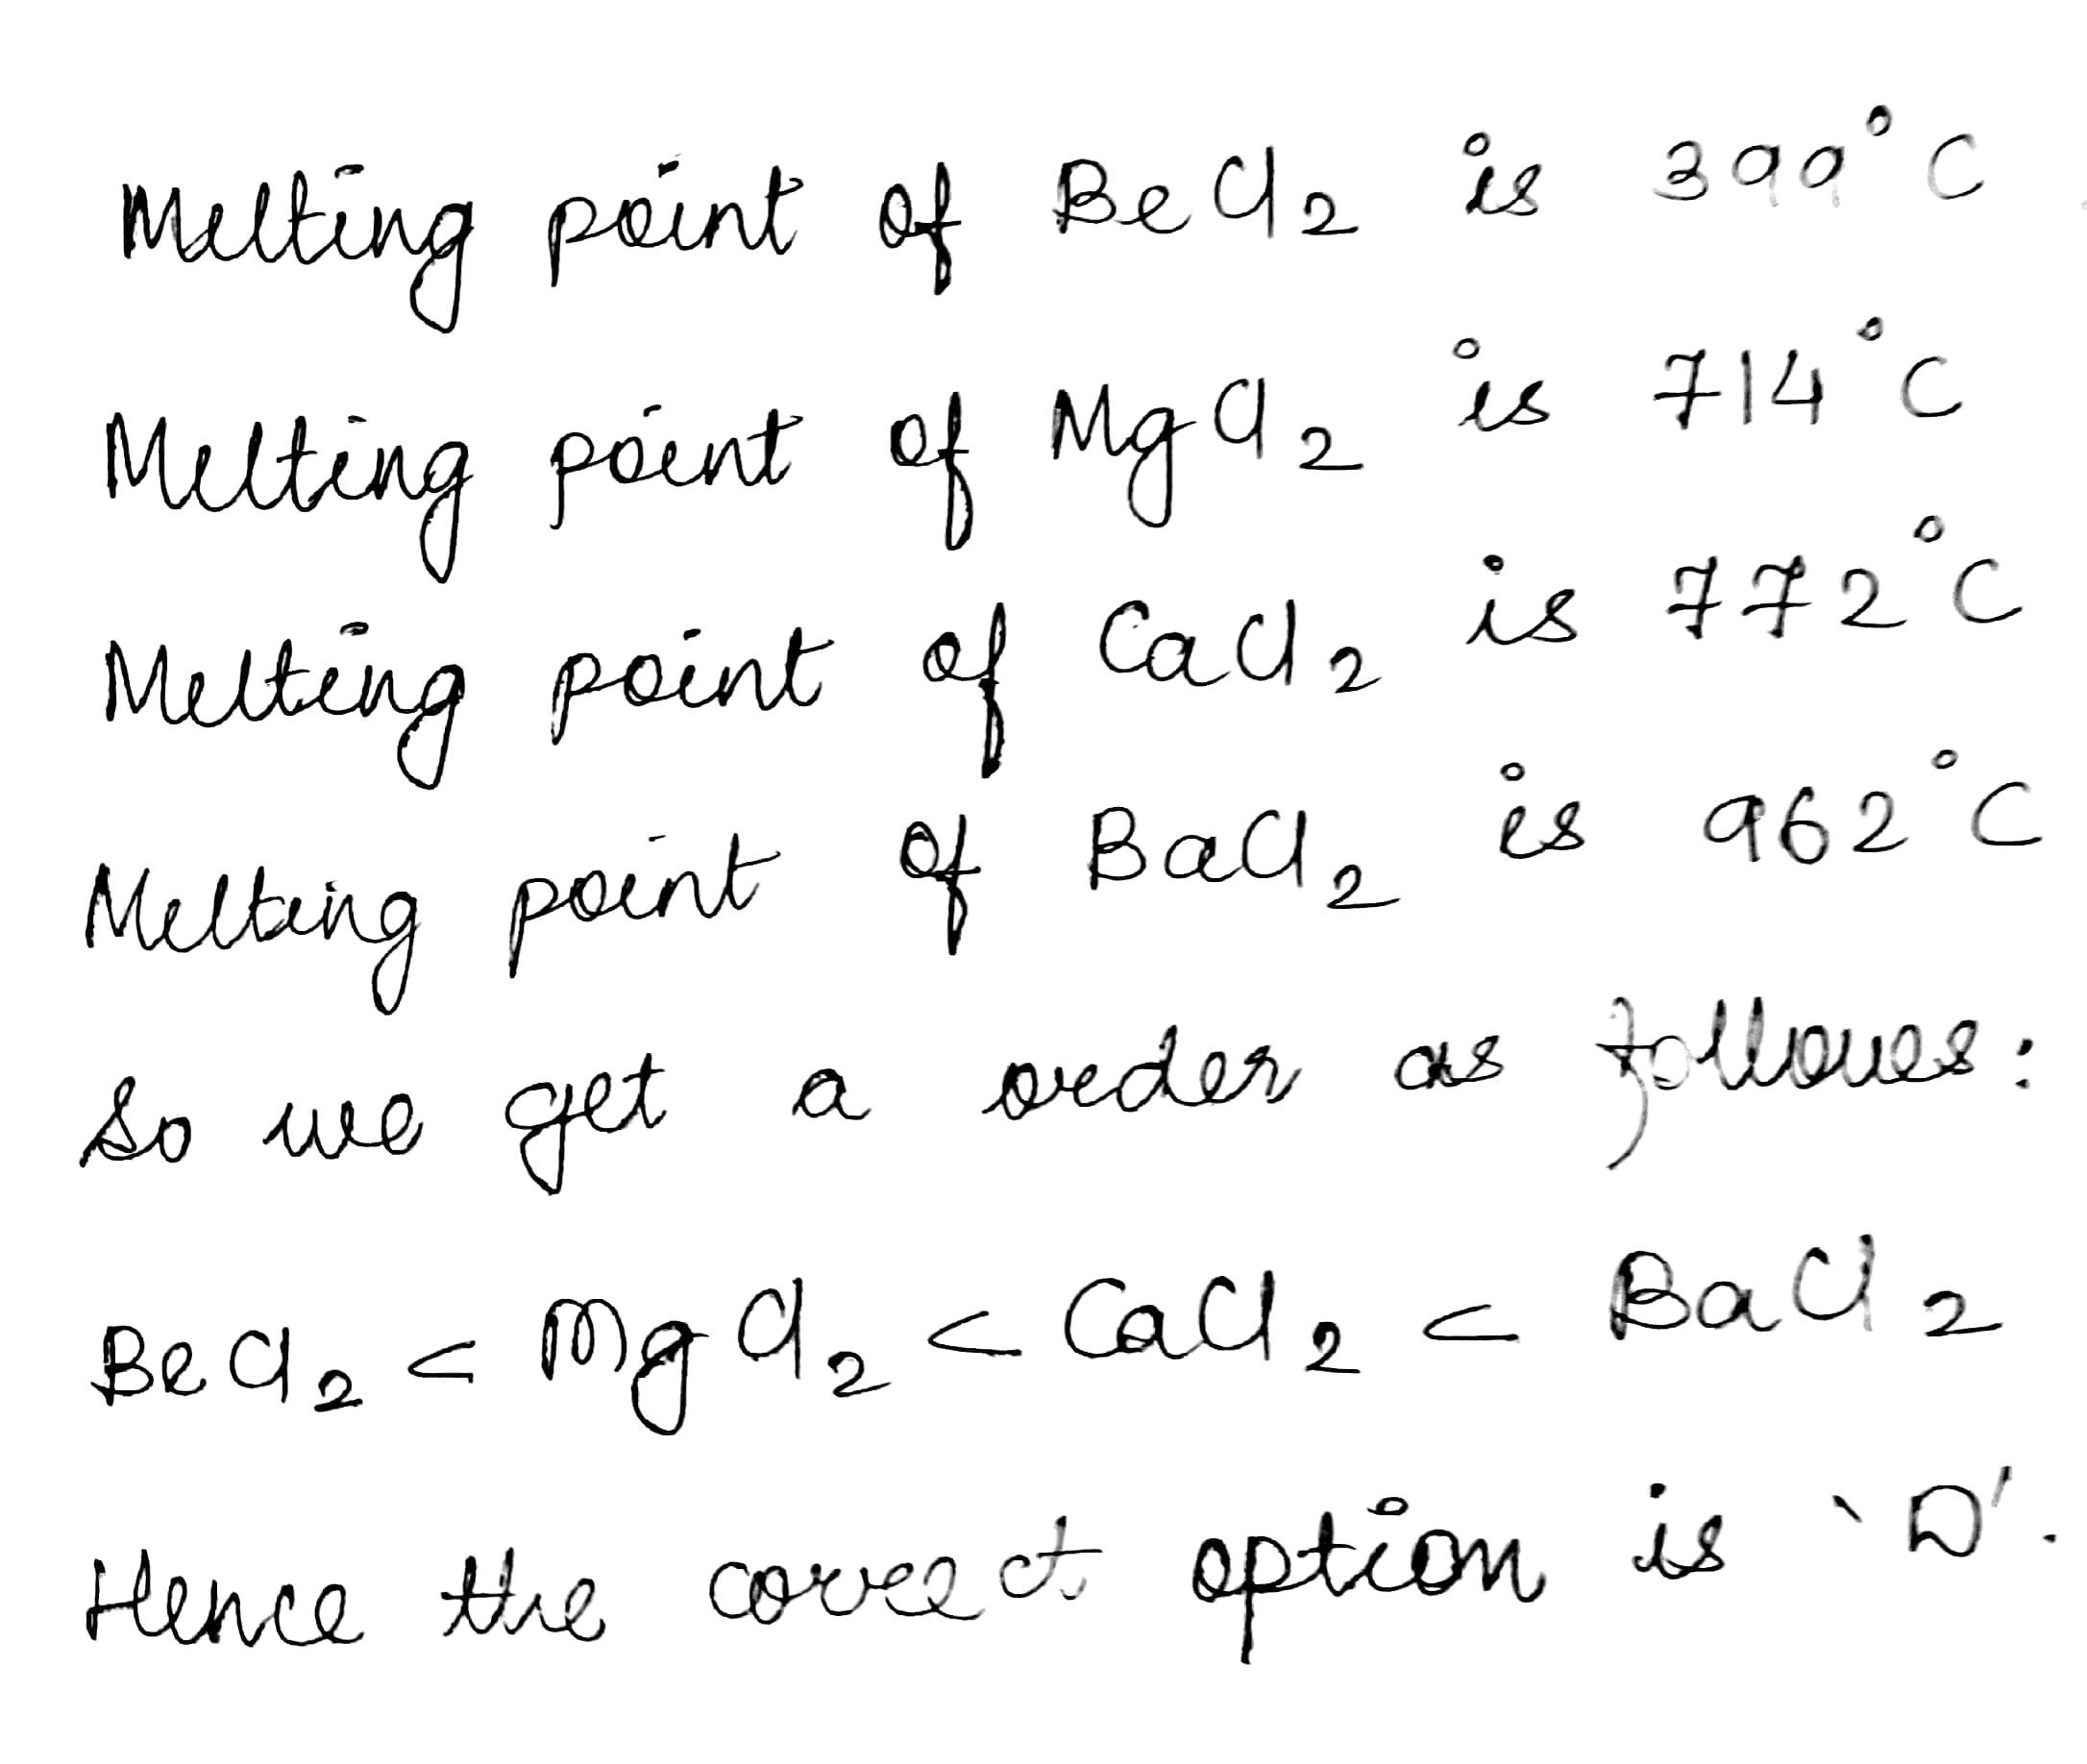 Melting point of BeCl₂ is 399°C
Melting point of MgCl₂ is 714°C
Melting point of CaCl₂ is 772°C
Melting point of BaCl₂ is 962°C
So we get a order as follows:
BeCl₂ < MgCl₂ < CaCl₂ < BaCl₂
Hence the correct option is 'D'.